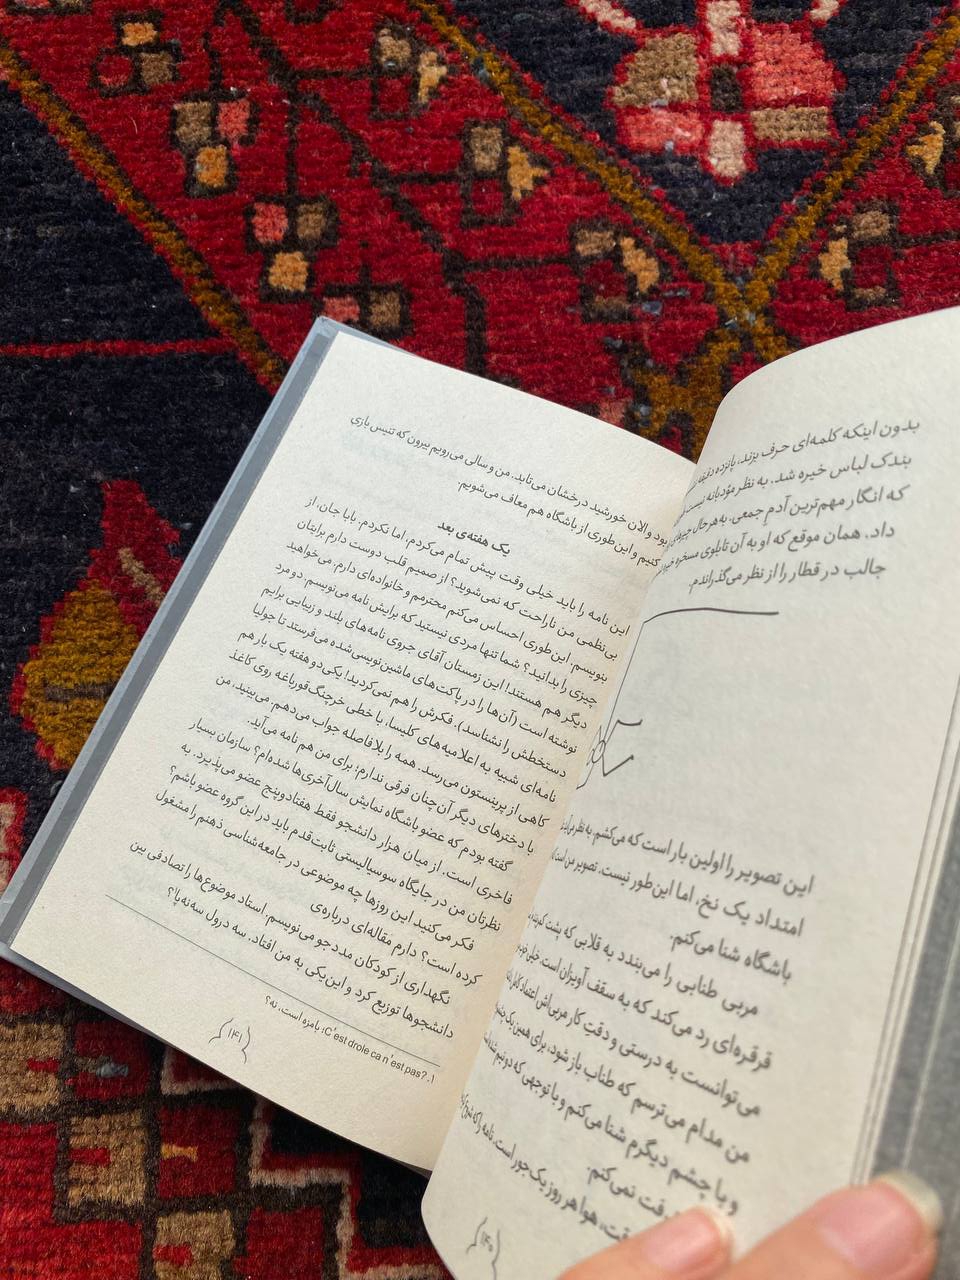 بدون اینکه کلمه‌ای حرف بزند، پانزده دقیقه به
بندک لباس خیره شد. به نظر مؤدبانه نیست
که انگار مهم‌ترین آدمِ جمعی. به‌هرحال
داد. همان موقع که او به آن تابلوی مسخره
جالب در قطار را از نظر می‌گذراندم.
این تصویر را اولین بار است که می‌کشم. به نظر می‌آید
امتداد یک نخ، اما این‌طور نیست. تصویر من است
باشگاه شنا می‌کنم.
مربی طنابی را می‌بندد به قلابی که پشت
قرقره‌ای رد می‌کند که به سقف آویزان است. خیلی خوب
می‌توانست به درستی و دقتِ کار مربی‌اش اعتماد کامل
من مدام می‌ترسم که طناب باز شود، برای همین یک چشمم
و با چشم دیگرم شنا می‌کنم و با توجهی که دو نیم شده
رفت نمی‌کنم.
هوا هر روز یک جور است. نامه را که شروع
۱۴۰
بود و الان خورشید درخشان می‌تابد. من و سالی می‌رویم بیرون که تنیس بازی
کنیم و این‌طوری از باشگاه هم معاف می‌شویم.
یک هفته‌ی بعد
این نامه را باید خیلی وقت پیش تمام می‌کردم، اما نکردم. بابا جان، از
بی‌نظمی من ناراحت که نمی‌شوید؟ از صمیم قلب دوست دارم برایتان
بنویسم. این‌طوری احساس می‌کنم محترمم و خانواده‌ای دارم. می‌خواهید
چیزی را بدانید؟ شما تنها مردی نیستید که برایش نامه می‌نویسم. دو مرد
دیگر هم هستند! این زمستان آقای جروی نامه‌های بلند و زیبایی برایم
نوشته است (آن‌ها را در پاکت‌های ماشین‌نویسی‌شده می‌فرستد تا جولیا
دستخطش را نشناسد). فکرش را هم نمی‌کردید! یکی دو هفته یک بار هم
نامه‌ای شبیه به اعلامیه‌های کلیسا، با خطی خرچنگ‌قورباغه روی کاغذ
کاهی از پرینستون می‌رسد. همه را بلافاصله جواب می‌دهم. می‌بینید، من
با دخترهای دیگر آن‌چنان فرقی ندارم؛ برای من هم نامه می‌آید.
گفته بودم که عضو باشگاه نمایش سال‌آخری‌ها شده‌ام؟ سازمان بسیار
فاخری است. از میان هزار دانشجو فقط هفتادوپنج عضو می‌پذیرد. به
نظرتان من در جایگاه سوسیالیستی ثابت‌قدم باید در این گروه عضو باشم؟
فکر می‌کنید این روزها چه موضوعی در جامعه‌شناسی ذهنم را مشغول
کرده است؟ دارم مقاله‌ای درباره‌ی
نگهداری از کودکان مددجو می‌نویسم. استاد موضوع‌ها را تصادفی بین
دانشجوها توزیع کرد و این یکی به من افتاد. سه درول سه‌نه‌پا؟
۱. C'est drole ca n'est pas?: بامزه است، نه؟
۱۴۱